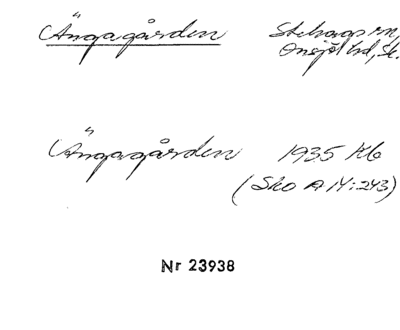 Ängagården Stehags sn,
Onsjö hd, Sk.
Ängagården 1935 Kb
(Sko A 14:243)
Nr 23938